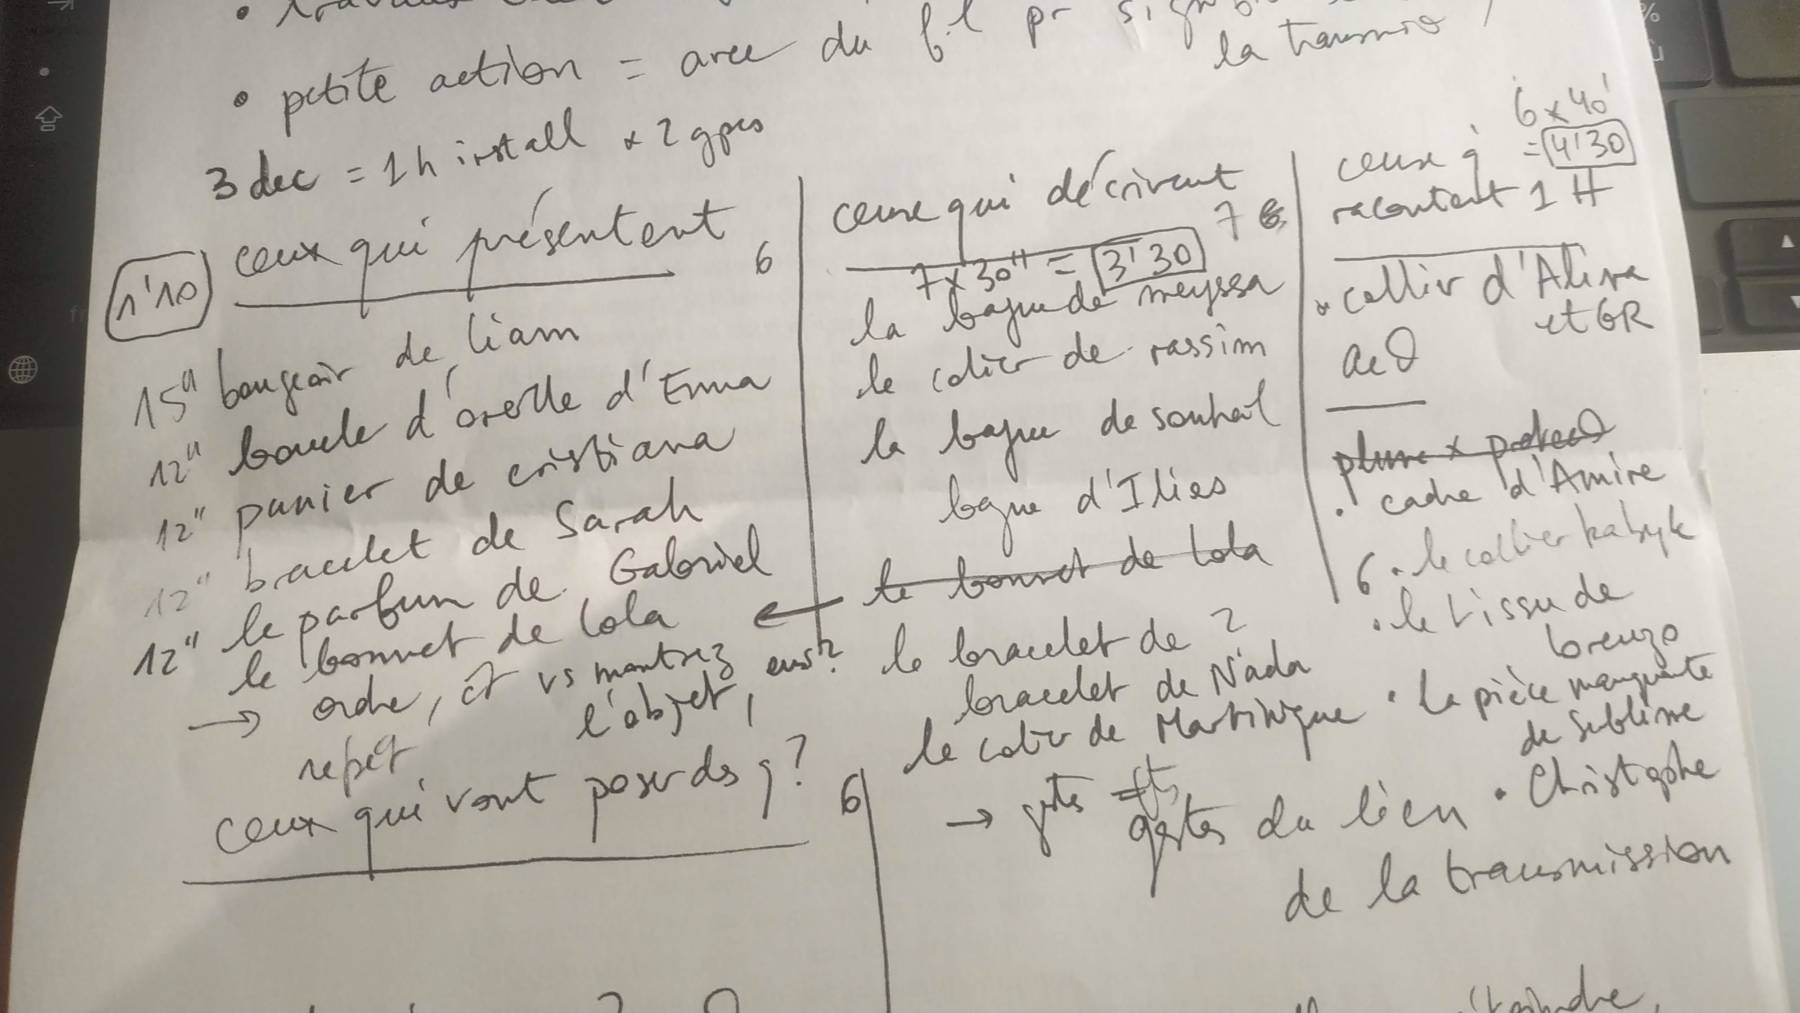 • petite action = avec du fil pr
la transmis°
3 dec = 1h install x 2 gpes
1'10
ceux qui présentent
6
15" bougeoir de liam
12" boucle d'oreille d'Emma
12" panier de cristiana
12" bracelet de Sarah
12" le parfum de Gabriel
le bonnet de Lola
→ ordre, ct vs montrez
l'objet, ens?
repet
ceux qui vont poser ds q?
6
ceux qui décrivent
7 6
7 x 30" = 3'30
la bague de meyssa
le colier de rassim
la bague de souhail
bgue d'Ilies
le bonnet de Lola
le bracelet de ?
bracelet de Nada
le colier de Martinique
→ gtes
gestes du lien
de la transmission
6 x 40'
= 4'30
ceux q
racontent 1 H
• collier d'Alina
et GR
plume x
• cadre d'Amire
6 • le collier kabyle
• le tissu de
Lorenzo
• la pièce manquante
de Sublime
• Christophe